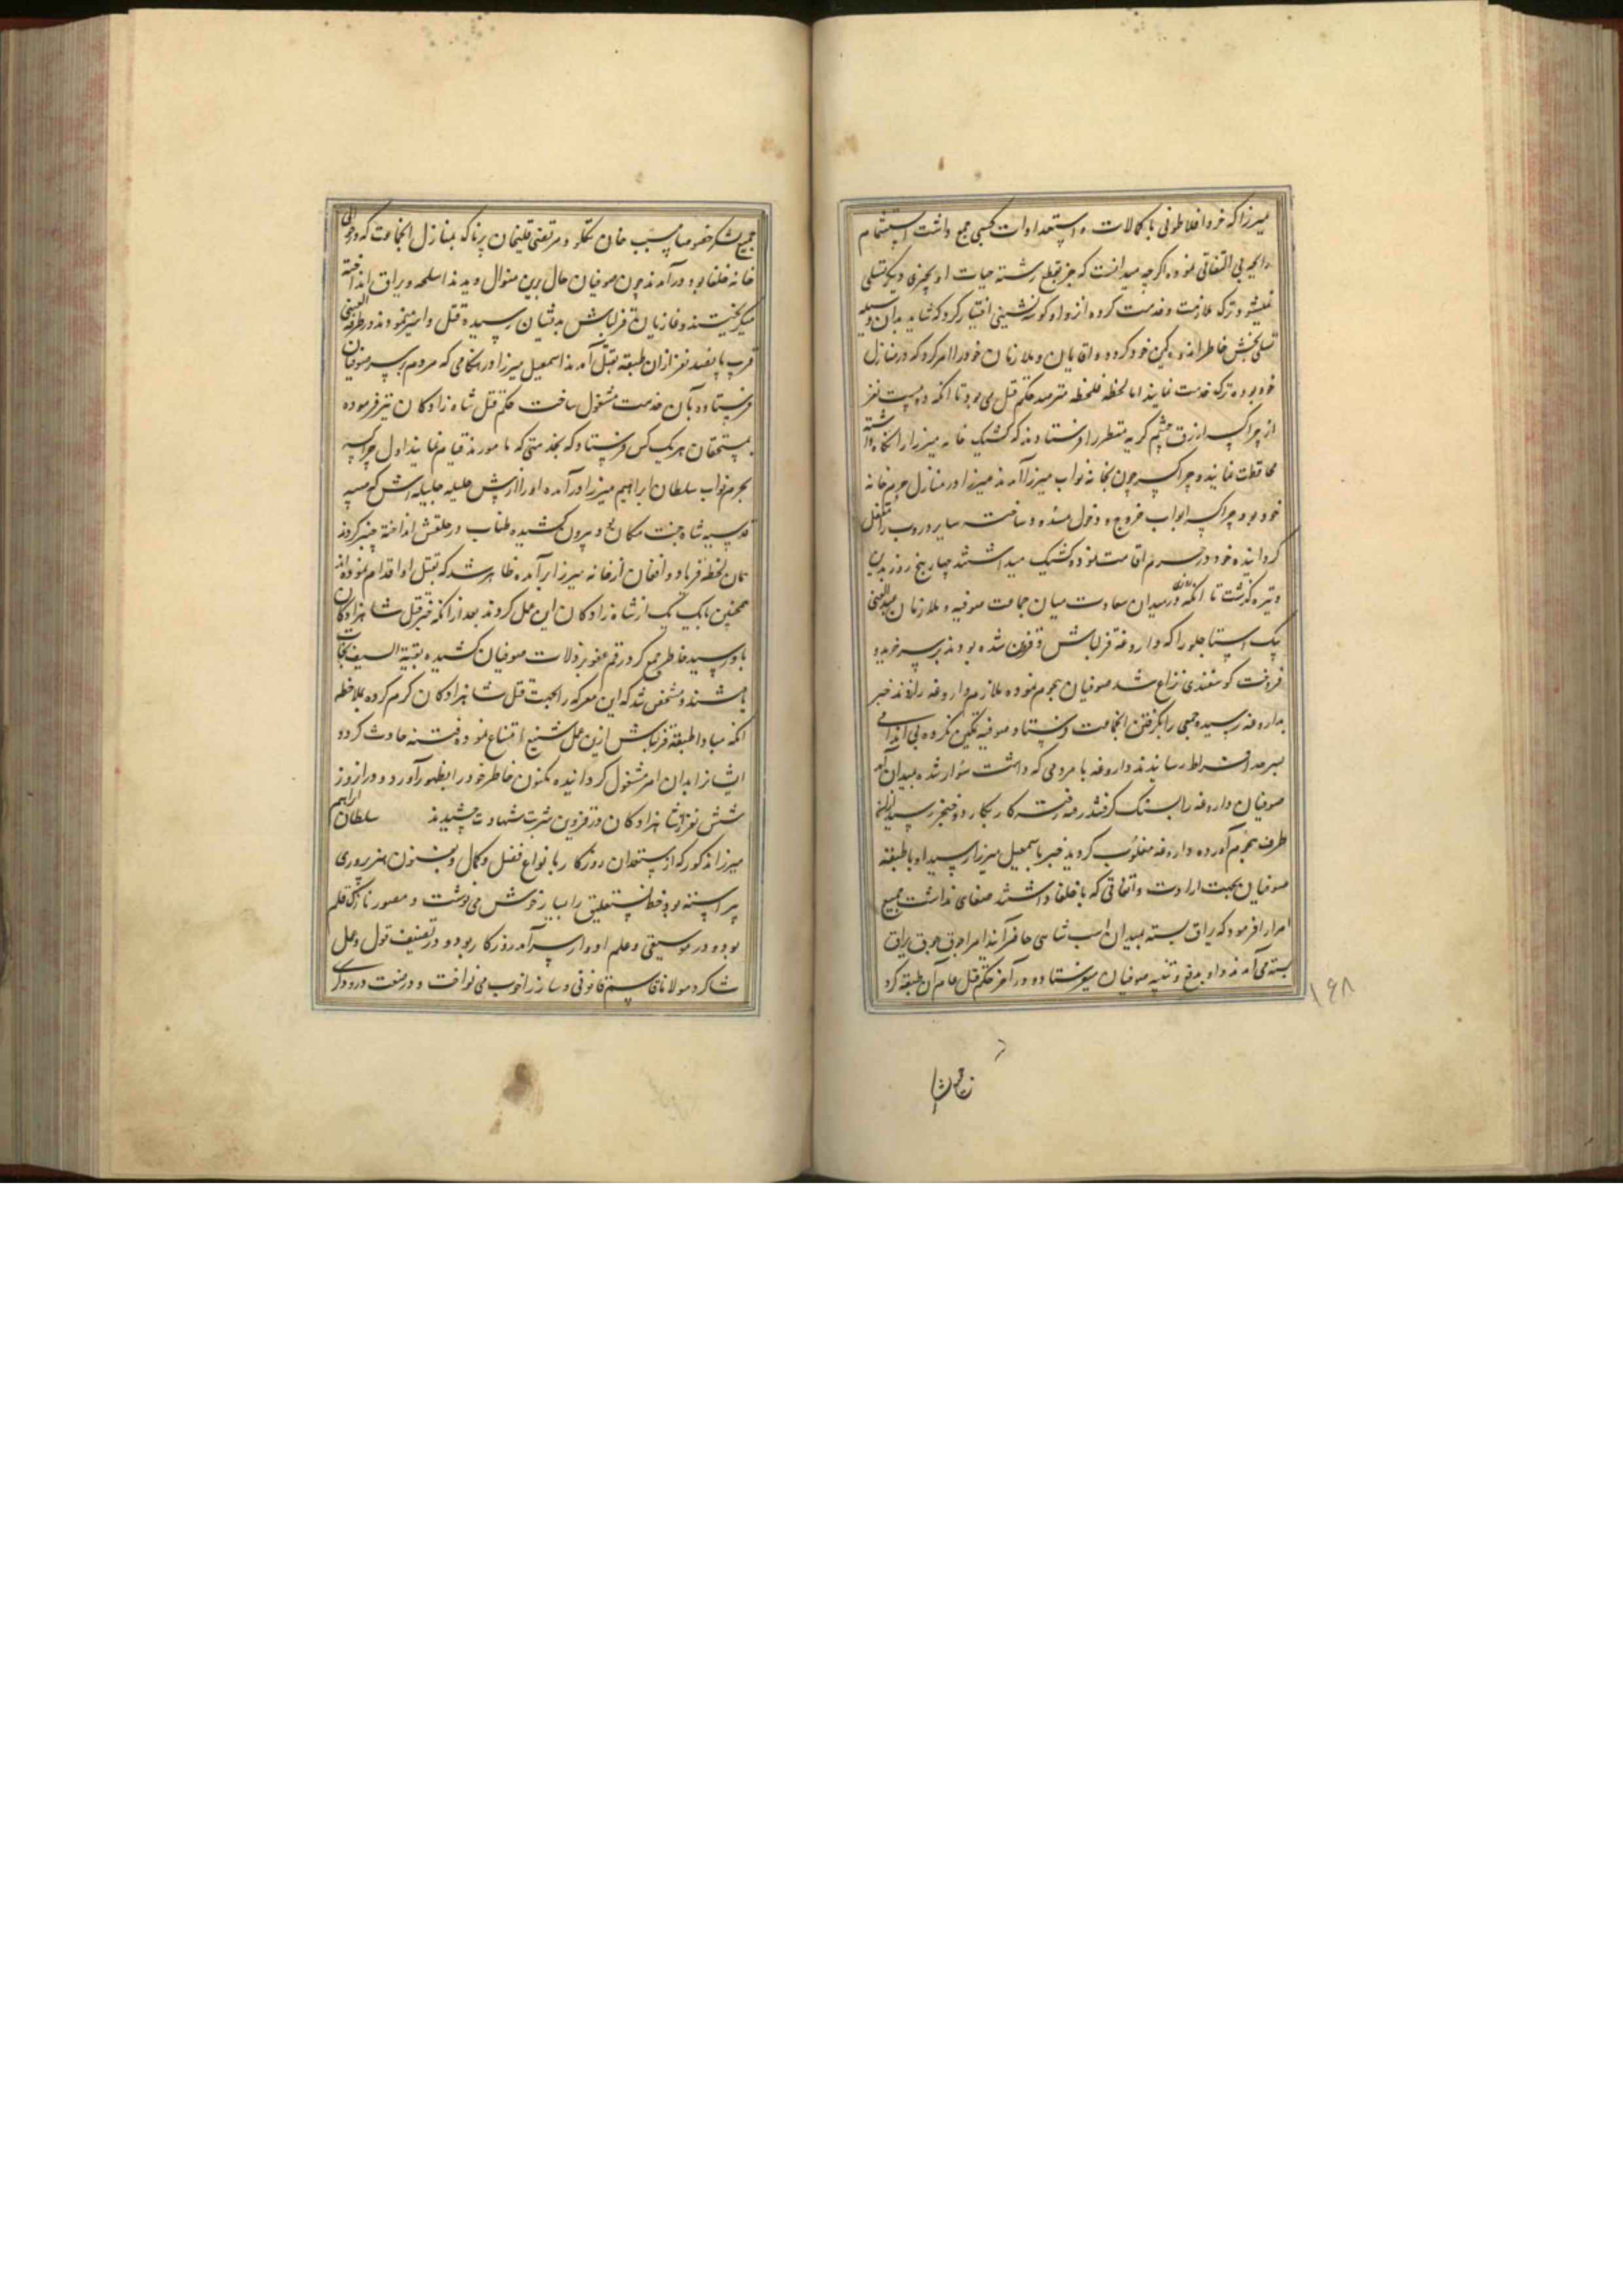 میرزا که خرد افلاطونی با کمالات و استعدادات کسبی جمع داشت استشمام
رایحه بی التفاتی نموده اگرچه میدانست که جز بقطع رشته حیات او بچیزی دیگر تسلی
نمیشود ترک ملازمت و خدمت کرده انزوا و گوشه نشینی اختیار کرد که شاید بدان وسیله
تسلی بخش خاطر اندوهگین خود گردد و اقایان و ملازمان خود را امر کرد که در منازل
خود بوده ترک خدمت نمایند اما لحظه فلحظه مترصد حکم قتل می بود تا انکه دویست نفر
از چراکسه ازرق چشم کریه منظر را فرستادند که کشیک خانه میرزا را نگاه داشته
محافظت نمایند و چراکسه چون بخانه نواب میرزا آمدند میرزا در منازل حرم خانه
خود بود و چراکسه ابواب خروج و دخول مسدود ساخته سایر دروب را مقفل
گردانیده خود در سرم اقامت نموده کشیک میداشتند چهار پنج روز بدین
وتیره گذشت تا انکه روزی در میدان سعادت میان جماعت صوفیه و ملازمان
بیک استاجلو را که داروغه قزلباش و قزوین شده بودند بر سر خرید و
فروخت گوسفندی نزاع شد صوفیان هجوم نموده ملازم داروغه را زدند خبر
بداروغه رسیده جمعی را بگرفتن انجماعت فرستاد صوفیه تمکین نکرده بی اندامی
بسرحد افراط رسانیدند داروغه با مردمی که داشت سوار شده بمیدان آمد
صوفیان داروغه را بسنگ گرفتند رفته رفته کار بکارد و خنجر رسید از انطرف
طرف هجوم آورده داروغه مغلوب گردید خبر باسمعیل میرزا رسید او با طبقه
صوفیان بجهت ارادت و اتفاقی که با خلفا داشتند صفای نداشت جمیع
امرا را فرمود که یراق بسته بمیدان اسب شاهی حاضر آیند امرا جوق جوق یراق
بسته می آمدند و او بدفع و تنبیه صوفیان میفرستاد و در آخر حکم قتل عام آن طبقه کرد
۱۶۸
جمیع لشکر خصوصا مسیب خان تکلو و مرتضی قلیخان پرناک بمنازل انجماعت که در حوالی
خانه خلفا بود درآمدند چون صوفیان حال برین منوال دیدند اسلحه و یراق انداخته
میگریختند و غازیان قزلباش بدیشان رسیده قتل و اسر مینمودند در طرفة العینی
قریب پانصد نفر ازان طبقه بقتل آمدند اسمعیل میرزا در هنگامی که مردم بر سر صوفیان
فرستاده بآن خدمت مشغول ساخت حکم قتل شاه زادگان نیز فرموده
بمستحقان هر یک کس فرستاد که بخدمتی که مامورند قیام نمایند اول چراکسه
بحرم نواب سلطان ابراهیم میرزا درآمده او را از پیش حلیله جلیله اش که صبیه
قدسیه شاه جنت مکان بود بیرون کشیده طناب در حلقش انداخته چنبر کردند
همان لحظه فریاد و افغان از خانه میرزا برآمده ظاهر شد که بقتل او اقدام نموده اند
همچنین با یک یک از شاه زادگان این عمل کردند بعد از انکه خبر قتل شاهزادگان
باو رسید خاطر جمع کرد رقم عفو بر زلات صوفیان کشیده بقیة السیف نجات
یافتند و مشخص شد که این معرکه را بجهت قتل شاهزادگان گرم کرده بملاحظه
انکه مبادا طبقه قزلباش ازین عمل شنیع امتناع نموده فتنه حادث گردد
ایشانرا بدان امر مشغول گردانیده مکنون خاطر خود را بظهور آورد و در انروز
شش نفر از شاهزادگان در قزوین شربت شهادت چشیدند سلطان ابراهیم
میرزا مذکور که از مستعدان روزگار بانواع فضل و کمال و بفنون هنرپروری
پیراسته بود خط نستعلیق را بسیار خوش می نوشت و مصور نازک قلم
بود و در موسیقی و علم ادوار سرآمد روزگار بود و در تصنیف قول و عمل
شاگرد مولانا قاسم قانونی و ساز را خوب می نواخت و در صنعت درودگری